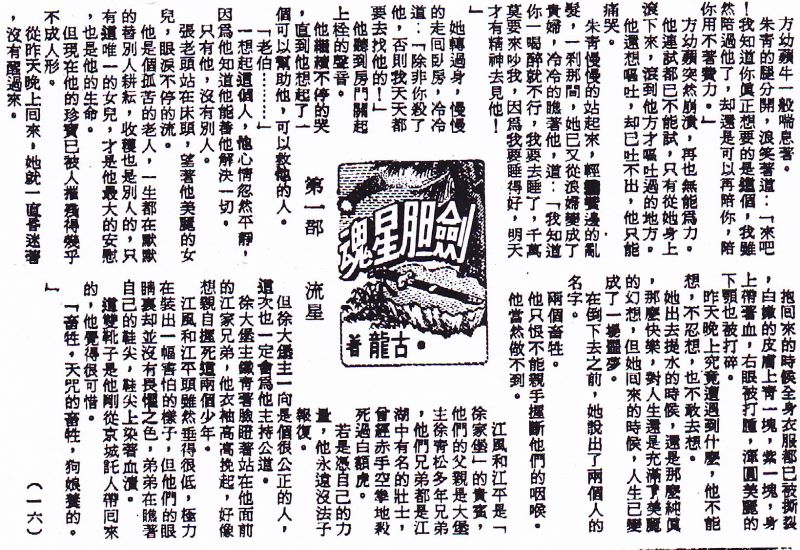 方幼蘋牛一般喘息着。
朱青的腿分開，浪笑著道：「來吧
！我知道你眞正想要的是這個，我雖
然陪過他了，却還是可以再陪你，陪
你用不著費力。」
方幼蘋突然崩潰，再也無能爲力。
他連試都已不能試，只有從她身上
滾下來，滾到他方才嘔吐過的地方。
他還想嘔吐，却已吐不出，他只能
痛哭。
朱青慢慢的站起來，輕鬢邊的亂
髮，一剎那間，她已又從浪婦變成了
貴婦，冷冷的瞧著他，道：「我知道
你一喝醉就不行，我要去睡了，千萬
莫要來吵我，因爲我要睡得好，明天
才有精神去見他！」
她轉過身，慢慢
的走回臥房，冷冷
道：「除非你殺了
他，否則我天天都
要去找他的！」
他聽到房門關起
上栓的聲音。
他繼續不停的哭
，直到他想起了一
個可以幫助他，可以救他的人。
「老伯………」
一想起這個人，他心情忽然平靜，
因爲他知道他能替他解決一切。
只有他，沒有別人。
張老頭站在床頭，望著他美麗的女
兒，眼淚不停的流。
他是個孤苦的老人，一生都在默默
的替別人耕耘，收穫也是別人的，只
有這唯一的女兒，才是他最大的安慰
，也是他的生命。
但現在他的珍寶已被人摧殘得幾乎
不成人形。
從昨天晚上回來，她就一直昏迷著
，沒有醒過來。
劍胆星魂
古龍・著
第一部　流星
抱回來的時候全身衣服都已被撕裂
，白嫩的皮膚上靑一塊，紫一塊，身
上帶著血，右眼被打腫，渾圓美麗的
下顎也被打碎。
昨天晚上究竟遭遇到什麼，他不能
想，不忍想，也不敢去想。
她出去提水的時候，還是那麼純眞
，那麼快樂，對人生還是充滿了美麗
的幻想，但她回來的時候，人生已變
成了一場噩夢。
在倒下去之前，她說出了兩個人的
名字。
兩個畜牲。
他只恨不能親手握斷他們的咽喉。
他當然做不到。
江風和江平是「
徐家堡」的貴賓，
他們的父親是大堡
主徐青松多年兄弟
，他們兄弟都是江
湖中有名的壯士，
曾經赤手空拳地殺
死過白額虎。
若是憑自己的力
量，他永遠沒法子
報復。
但徐大堡主一向是個很公正的人，
這次也一定會爲他主持公道。
徐大堡主鐵靑著臉瞪著站在他面前
的江家兄弟，他衣袖高高挽起，好像
想親自握死這兩個少年。
江風和江平頭雖然垂得很低，極力
在裝出一幅害怕的樣子，但他們的眼
睛裏却並沒有畏懼之色，弟弟在瞧著
自己的鞋尖，鞋尖上染著血漬。
這雙靴子是他剛從京城託人帶回來
的，他覺得很可惜。
「畜牲，天咒的畜牲，狗娘養的。
」
（一六）